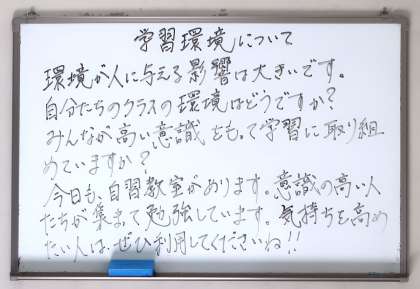 学習環境について
環境が人に与える影響は大きいです。
自分たちのクラスの環境はどうですか？
みんなが高い意識をもって学習に取り組
めていますか？
今日も、自習教室があります。意識の高い人
たちが集まって勉強しています。気持ちを高め
たい人は、ぜひ利用してくださいね!!